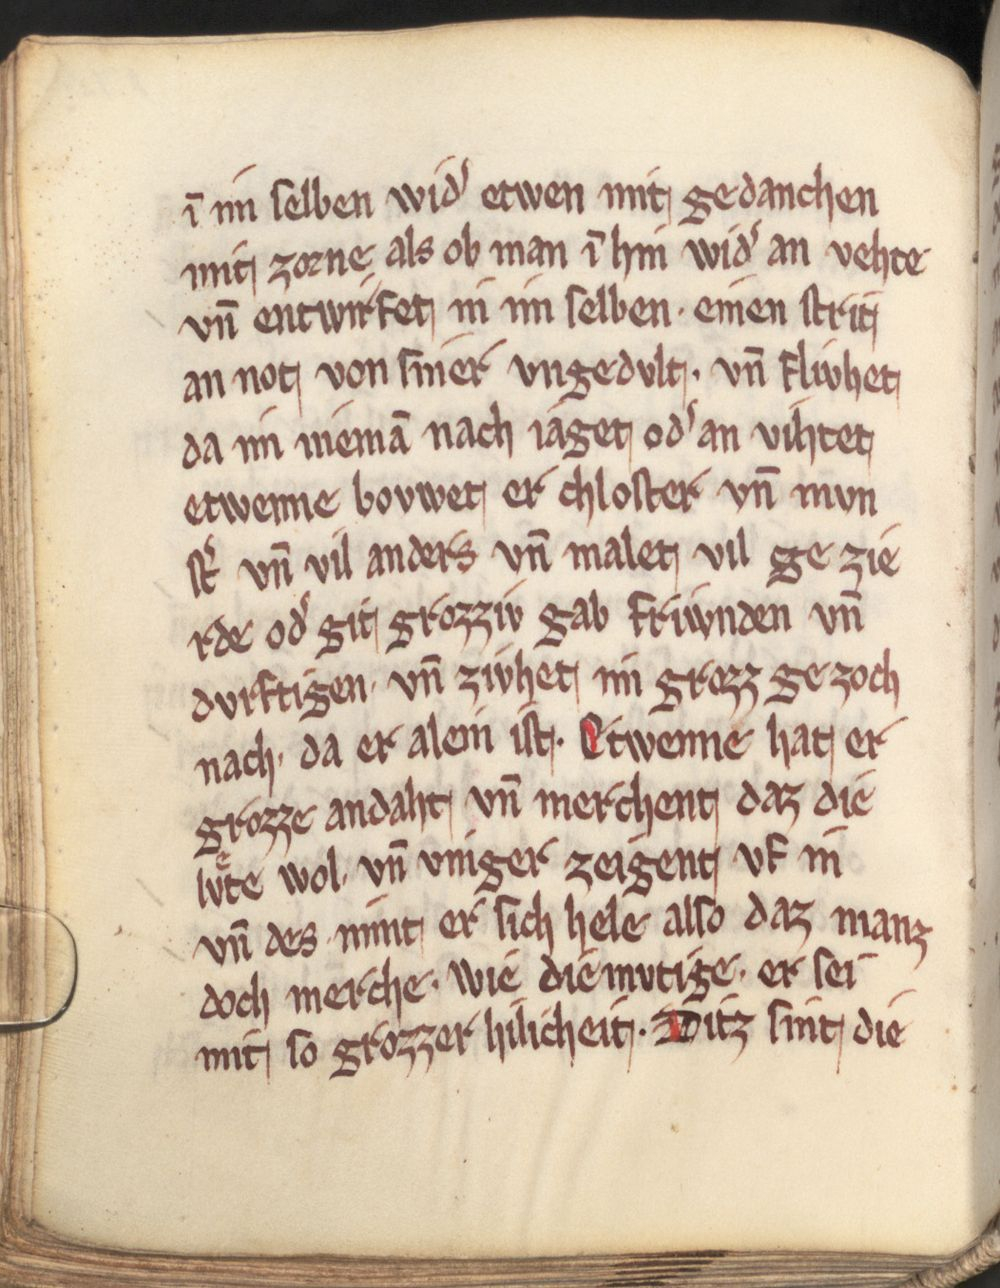 ī im selben wid᾽ etwen mit gedanchen
mit zorne als ob man ī hin wid᾽ an vehte
vn̄ entwirfet in im selben · einen strit
an not von siner vngedvlt · vn̄ flivhet
da im niemā nach iaget od᾽ an vihtet
etwenne bovwet er chloster vn̄ mvn
st᾽ vn̄ vil anders vn̄ malet vil ge zie
rde od᾽ git grozziv gab frivnden vn̄
dvrftigen · vn̄ zivhet im grozz ge zoch
nach · da er alein ist · Etwenne hat er
grozze andaht vn̄ merchent daz die
lvͤte wol · vn̄ vniger zeigent vf in
vn̄ des nimt er sich hele also daz manz
doch merche · wie diemvtige · er sei
mit so grozzer hilicheit · Ditz sint die